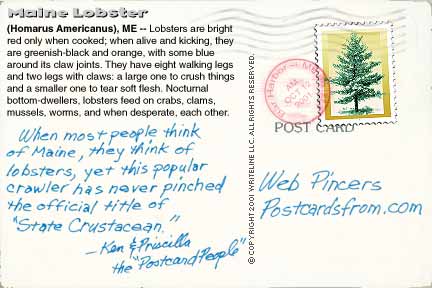 Maine Lobster
(Homarus Americanus), ME -- Lobsters are bright
red only when cooked; when alive and kicking, they
are greenish-black and orange, with some blue
around its claw joints. They have eight walking legs
and two legs with claws: a large one to crush things
and a smaller one to tear soft flesh. Nocturnal
bottom-dwellers, lobsters feed on crabs, clams,
mussels, worms, and when desperate, each other.
When most people think
of Maine, they think of
lobsters, yet this popular
crawler has never pinched
the official title of
"State Crustacean."
—Ken & Priscilla
the "Postcard People"
© COPYRIGHT 2001 WRITELINE LLC. ALL RIGHTS RESERVED.
Bar Harbor - Maine
AM
OCT
POST CARD
Web Pincers
Postcardsfrom.com